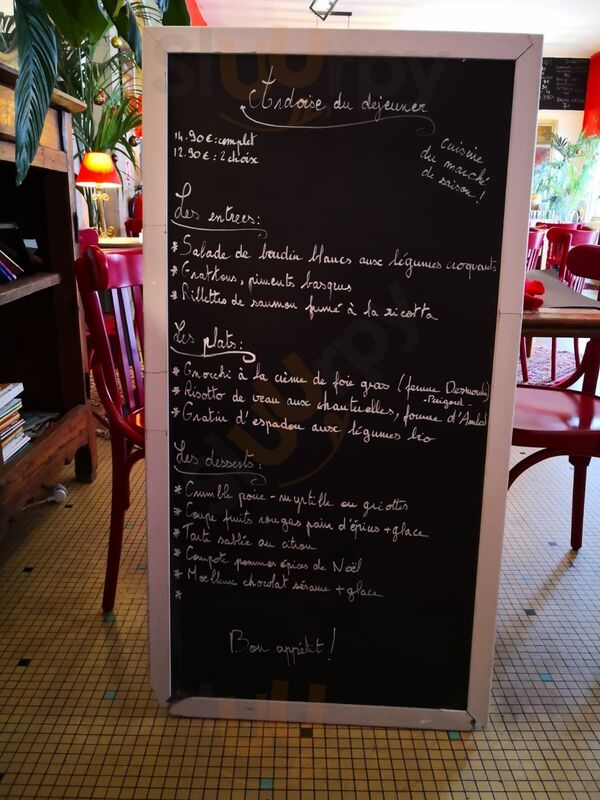 Ardoise du dejeuner
14.90€: complet
12.90€: 2 choix
cuisine
du marché
de saison!
Les entrees:
* Salade de boudin blancs aux légumes croquants
* Grattons, piments basques
* Rillettes de saumon fumé à la ricotta
Les plats:
* Gnocchi à la crème de foie gras (ferme
-Périgord-
* Risotto de veau aux chanterelles, fourme d'Ambert
* Gratin d'espadon aux légumes bio
Les desserts:
* Crumble poire-myrtille ou griottes
* Coupe fruits rouges pain d'épices + glace
* Tarte sablée au citron
* Compote pommes épices de Noël
* Moelleux chocolat sésame + glace
*
Bon appétit!
slurrpy